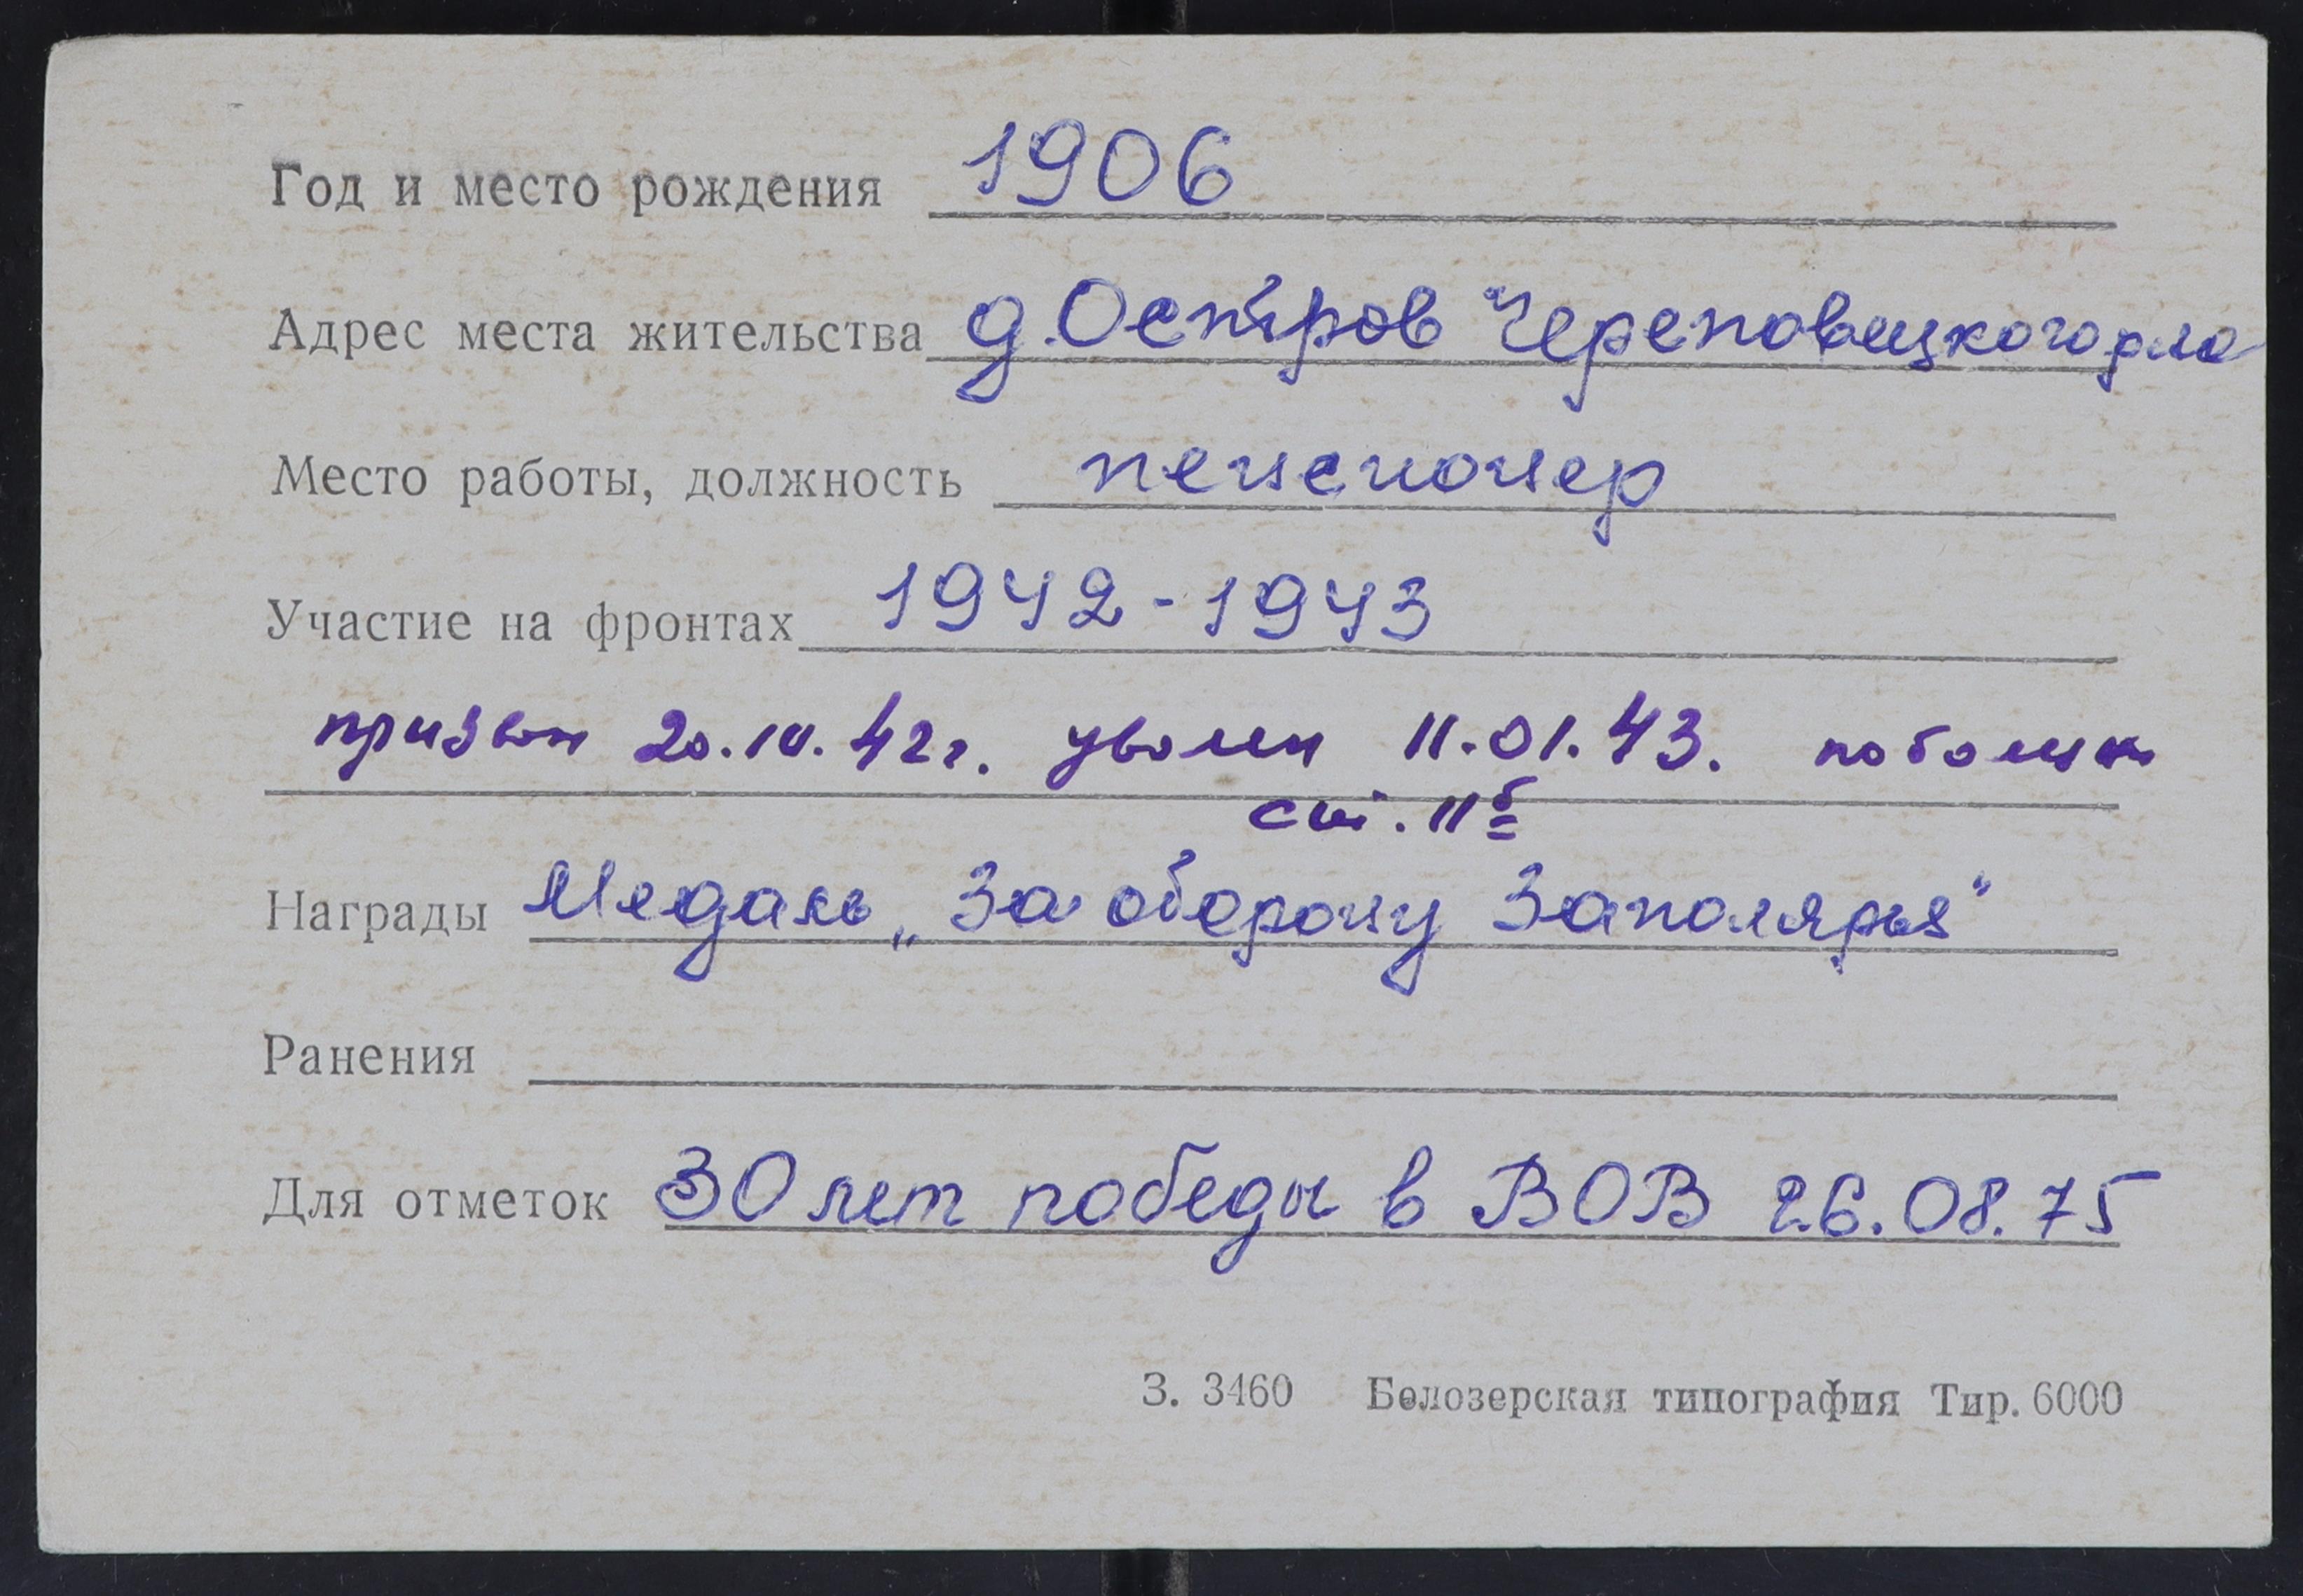 Год и место рождения 1906
Адрес места жительства д. Остров Череповецкого р-на
Место работы, должность пенсионер
Участие на фронтах 1942-1943
призван 20.10.42г. уволен 11.01.43. по болезни
ст. 11б
Награды Медаль „За оборону Заполярья"
Ранения
Для отметок 30 лет победы в ВОВ 26.08.75
З. 3460 Белозерская типография Тир. 6000